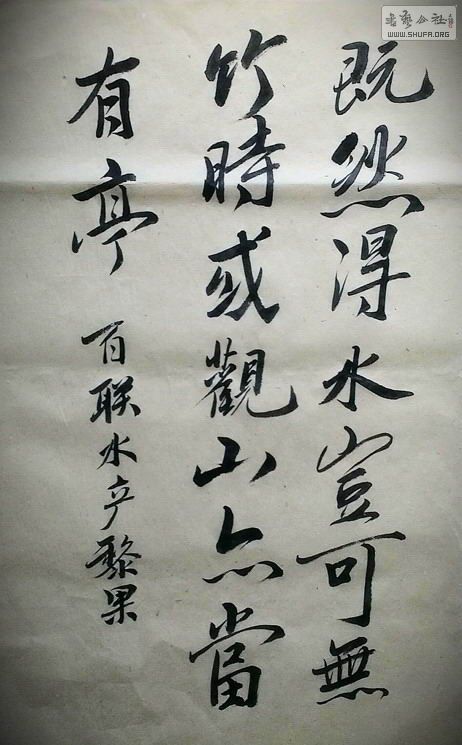 既然得水豈可無
竹時或觀山亦當
有亭
百联水产黎果
書藝公社
WWW.SHUFA.ORG